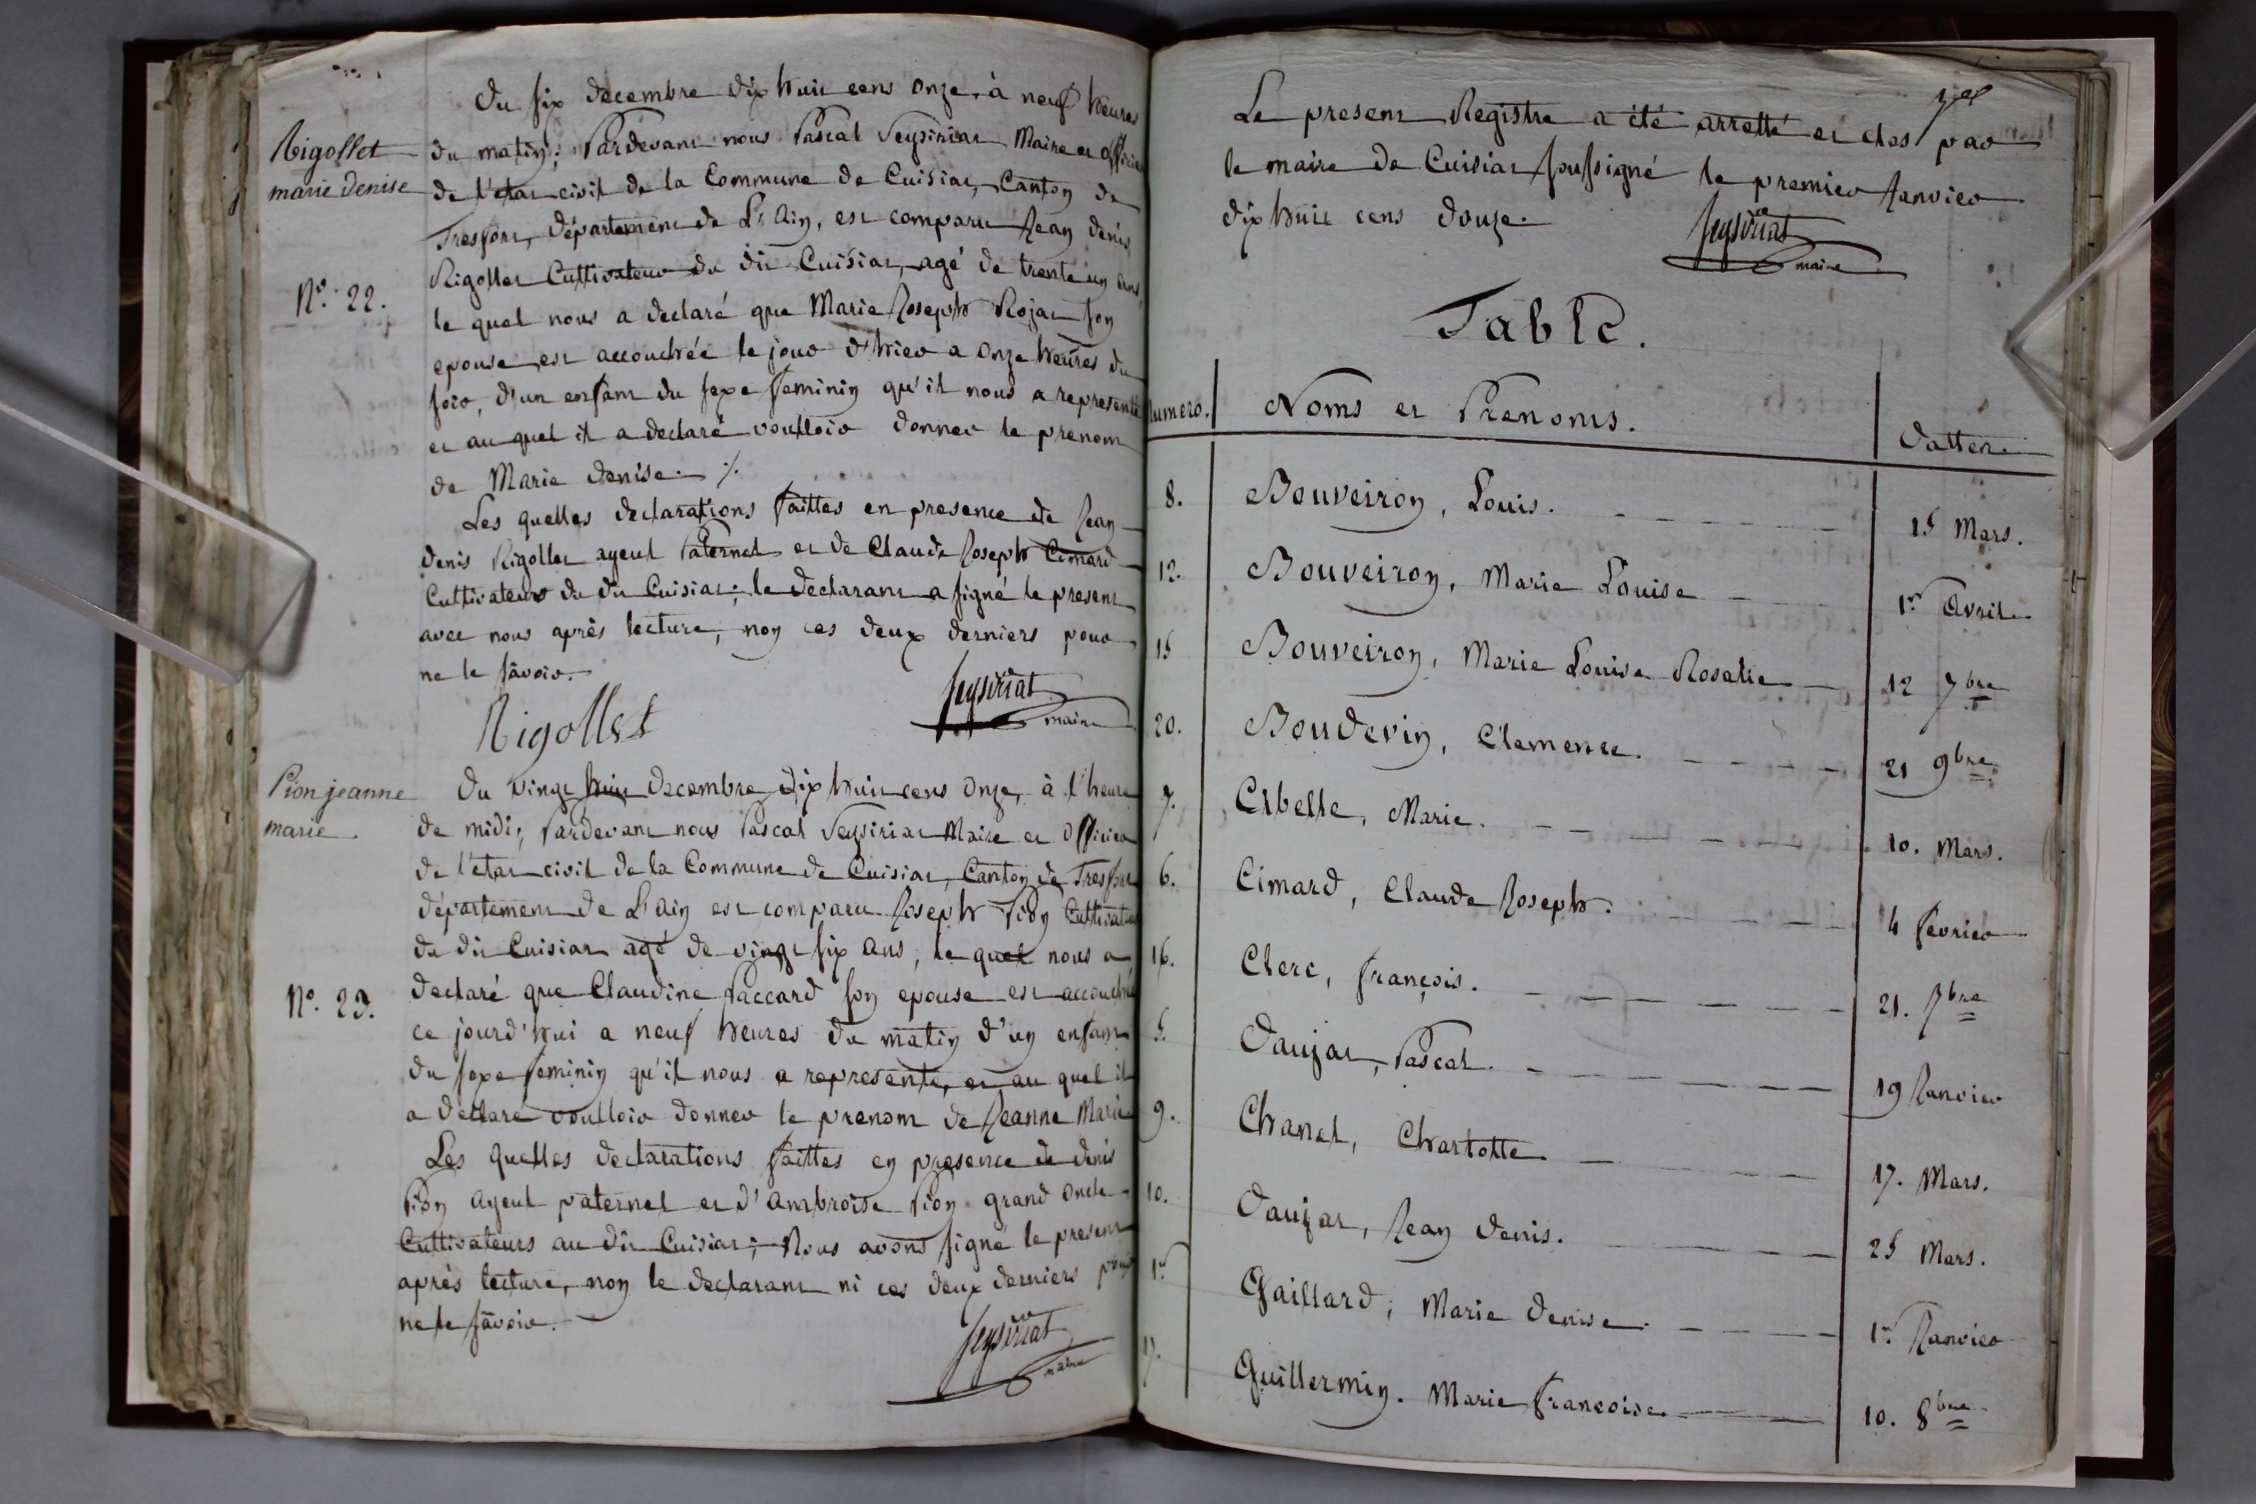 Du six decembre dix huit cens onze, à neuf heures
Rigollet
marie denise
du matin; Pardevant nous Pascal Seysiriat Maire et officier
de l'etat civil de la Commune de Cuisiat, Canton de
Tresfort, département de L'Ain, est comparu Jean denis
Rigollet Cultivateur du dit Cuisiat, agé de trente un ans,
N.o 22.
le quel nous a declaré que Marie Joseph Rojat son
epouse est accouchée le jour d'hier a onze heures du
soir, d'un enfant du sexe feminin qu'il nous a representé
et au quel il a declaré voulloir donner le prenom
de Marie denise. /.
Les quelles declarations faittes en presence de Jean
denis Rigollet ayeul Paternel et de Claude Joseph Cimard
Cultivateurs du dit Cuisiat; le declarant a signé le present
avec nous après lecture, non ces deux derniers pour
ne le savoir.
Rigollet
Seysiriat
maire
Pion jeanne
marie
Du vingt huit decembre dix huit cens onze, à l'heure
de midi, Pardevant nous Pascal Seysiriat Maire et Officier
de l'etat civil de la Commune de Cuisiat, Canton de Tresfort
département de L'Ain est comparu Joseph Pion Cultivateur
du dit Cuisiat agé de vingt six ans, le quel nous a
N.o 23.
declaré que Claudine Paccard son epouse est accouchée
ce jourd'hui a neuf heures du matin d'un enfant
du sexe feminin qu'il nous a representé, et au quel il
a declaré voulloir donner le prenom de Jeanne Marie
Les quelles declarations faittes en presence de denis
Pion ayeul paternel et d'ambroise Pion grand oncle
Cultivateurs au dit Cuisiat; Nous avons signé le present
après lecture, non le declarant ni ces deux derniers pour
ne le savoir.
Seysiriat
maire
Le present Registre a été arretté et clos par
le maire de Cuisiat soussigné le premier Janvier
dix huit cens douze.
Seysiriat
maire
Table.
Numero. Noms et Prenoms. Dattes
8. Bouveiron, Louis. 15 Mars.
12. Bouveiron, Marie Louise 1er Avril
15 Bouveiron, Marie Louise Rosalie 12 7bre
20. Boudevin, Clemence. 21 9bre
7. Cibelle, Marie. 10. Mars.
6. Cimard, Claude Joseph. 4 fevrier
16. Clerc, françois. 21. 7bre
5. Daujat, Pascal. 19 Janvier
9. Chanel, Charlotte 17. Mars.
10. Daujat, Jean denis. 25 Mars.
1er Gaillard, Marie denise. 1er Janvier
17. Guillermin. Marie françoise 10. 8bre